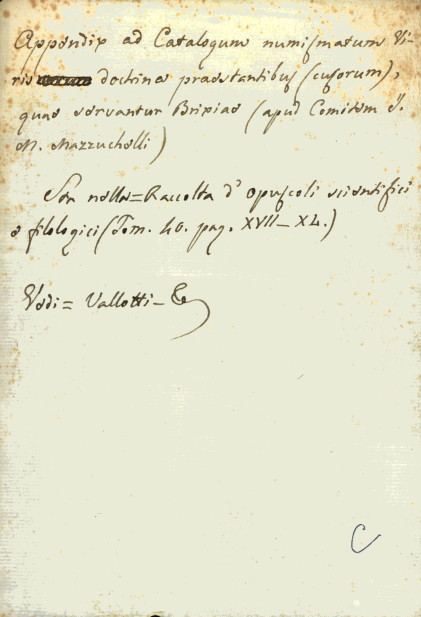 Appendix ad Catalogum numismatum Vi-
ris doctrina praestantibus (cusorum),
quae servantur Brixiae (apud Comitem J.
M. Mazzuchelli)
Sta nella = Raccolta d'opuscoli scientifici
e filologici (Tom. 40. pag. XVII - XL.)
Vedi = Vallotti -
C